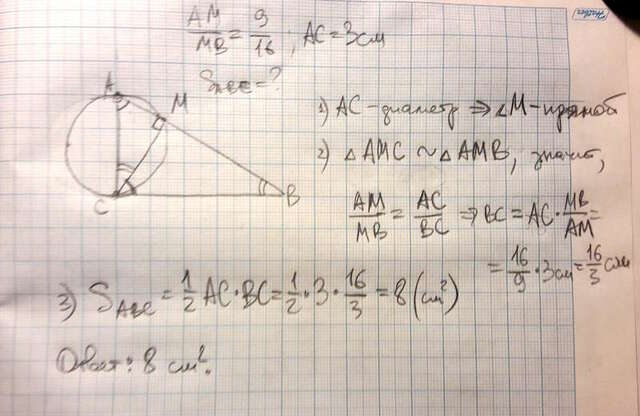 AM/MB = 9/16 ; AC = 3 см
S_ABC = ?
A
M
C
B
1) AC - диаметр ⇒ ∠M - прямой
2) △AMC ~ △AMB, значит,
AM/MB = AC/BC ⇒ BC = AC · MB/AM =
= 16/9 · 3 см = 16/3 см
3) S_ABC = 1/2 AC · BC = 1/2 · 3 · 16/3 = 8 (см²)
Ответ: 8 см².